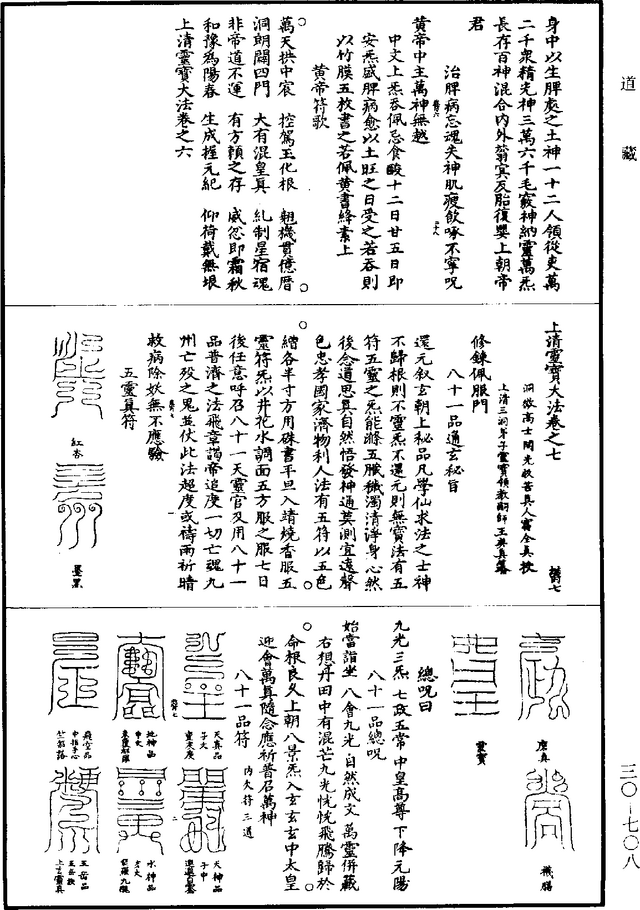 道藏
身中以生脾處之土神一十二人領從吏萬
二千衆精光神三萬六千毛竅神納靈萬炁
長存百神混合内外翁冥反胎復嬰上朝帝
君
治脾病忘魂失神肌瘦飲啄不寧呪
黄帝中主萬神無越
中文上炁吞佩忌食酸十二日廿五日即
安炁盛脾病愈以土旺之日受之若吞則
以竹膜五枚書之若佩黄書絳素上
黄帝符歌
萬天拱中宸 控駕玉化根 翱機貫億曆
洞朗闢四門 大有混皇真 糺制星宿魂
非帝道不運 有方賴之存 威忽即霜秋
和豫為陽春 生成握元紀 仰荷戴無垠
上清靈寶大法卷之六
上清靈寶大法卷之七
洞微高士開光救苦真人甯全真授
上清三洞弟子靈寶領教嗣師王契真纂
修鍊佩服門
八十一品通玄秘旨
還元叙玄朝上秘品凡學仙求法之士神
不歸根則不靈炁不還元則無寶法有五
符五靈之炁能滌五臟穢濁清淨身心然
後念道思真自然悟發神通莫測宜遠聲
色忠孝國家濟物利人法有五符以五色
繒各半寸方用硃書平旦入靖燒香服五
靈符炁以井花水調面五方服之服七日
後任意呼召八十一天靈官及用八十一
品普濟之法飛章謁帝追度一切亡魂九
州亡歿之鬼並仗此法超度或禱雨祈晴
救病除妖無不應驗
五靈真符
紅杏
墨黑
應真
靈寶
總呪曰
九光三炁 七政五常 中皇高尊 下降元陽
八十一品總呪
始當詣坐 八會九光 自然成文 萬靈併藏
右想丹田中有混芒九光恍恍飛騰歸於
命根良久上朝八景炁入玄玄玄中太皇
迎會萬真隨念應祈普召萬神
八十一品符
内大符三道
天真品
子文
地神品
申文
飛空品
中指子心
天神品
子申
水神品
五岳品
三〇—七〇八